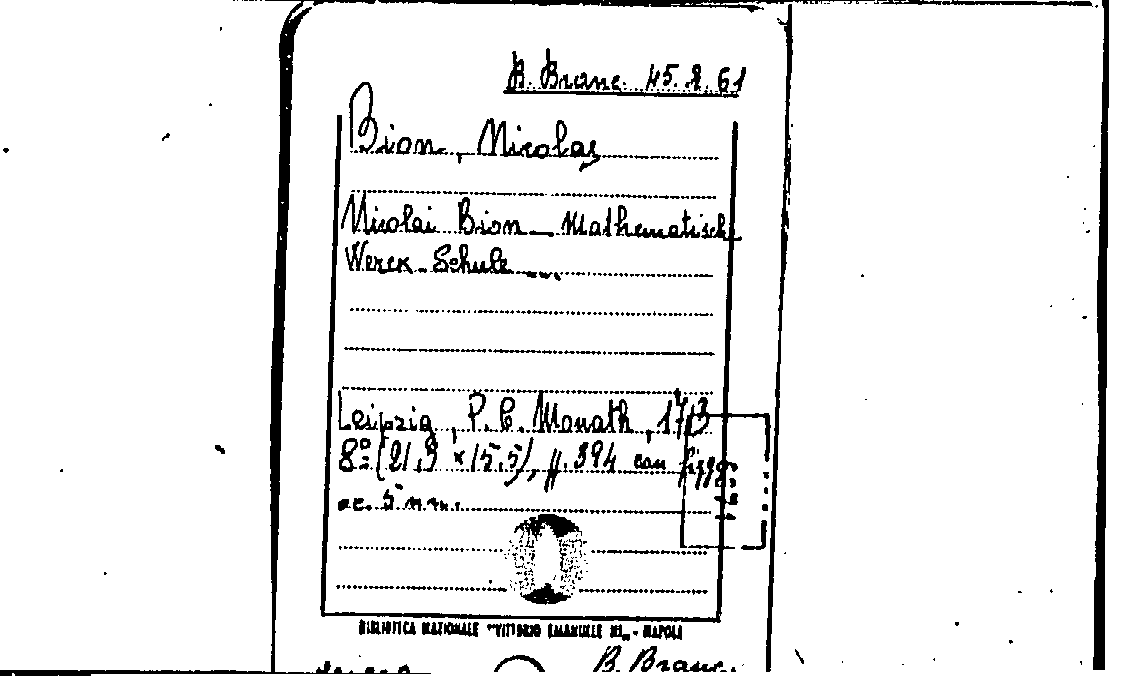 B. Branc. 45. 2. 61
Bion, Nicolas
Nicolai Bion Mathematische
Werck-Schule ....
Leipzig, P. C. Monath, 1713
8º (21,9 x 15,5), ff. 394 con figg.
BIBLIOTECA NAZIONALE "VITTORIO EMANUELE III" - NAPOLI
B. Branc.